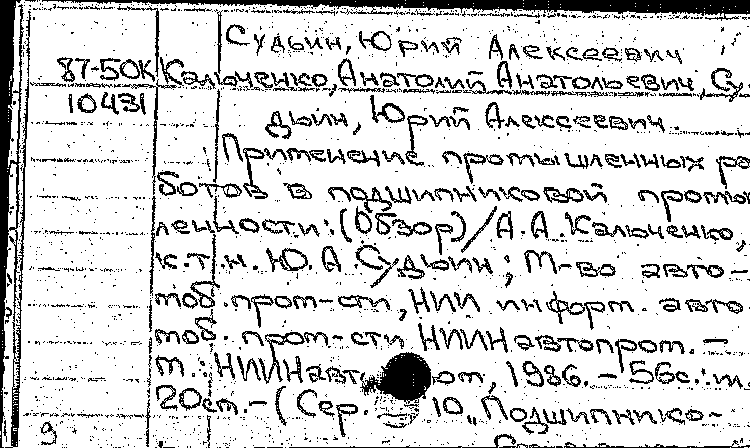 Судьин, Юрий Алексеевич
87-50К Калюченко, Анатолий Анатольевич, Су-
10431 дьин, Юрий Алексеевич.
Применение промышленных ро
ботов в подшипниковой промы
ленности: (Обзор) / А.А. Калюченко,
к.т.н. Ю.А. Судьин; М-во авто-
моб. пром-сти, НИИ информ. авто
моб. пром-сти НИИНавтопром. -
М.: НИИНавт ом, 1986. - 56с.: ил
20см. - (Сер. 10, „Подшипнико-
9